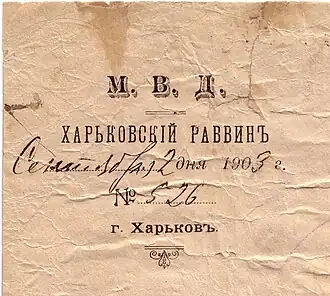 М. В. Д.
ХАРЬКОВСКІЙ РАВВИНЪ
Сентября 12 дня 1903 г.
№ 526
г. Харьковъ.